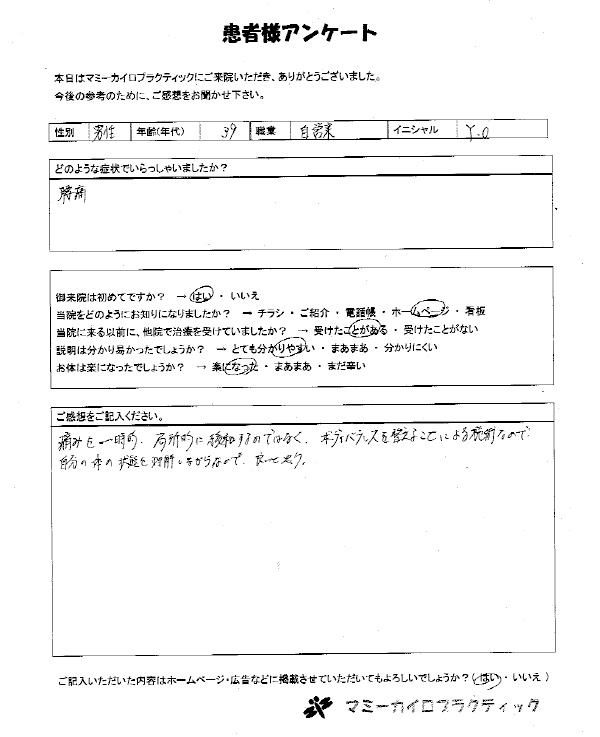 患者様アンケート
本日はマミーカイロプラクティックにご来院いただき、ありがとうございました。
今後の参考のために、ご感想をお聞かせ下さい。
性別 男性 年齢(年代) 39 職業 自営業 イニシャル Y.O
どのような症状でいらっしゃいましたか?
腰痛
御来院は初めてですか? → はい ・ いいえ
当院をどのようにお知りになりましたか? → チラシ ・ ご紹介 ・ 電話帳 ・ ホームページ ・ 看板
当院に来る以前に、他院で治療を受けていましたか? → 受けたことがある ・ 受けたことがない
説明は分かり易かったでしょうか? → とても分かりやすい ・ まあまあ ・ 分かりにくい
お体は楽になったでしょうか? → 楽になった ・ まあまあ ・ まだ辛い
ご感想をご記入ください。
痛みを一時的、局所的に緩和するのではなく、ボディバランスを整えることによる施術なので
自分の体の状態を理解しながらなので、良いと思う。
ご記入いただいた内容はホームページ・広告などに掲載させていただいてもよろしいでしょうか?(はい ・ いいえ )
マミーカイロプラクティック